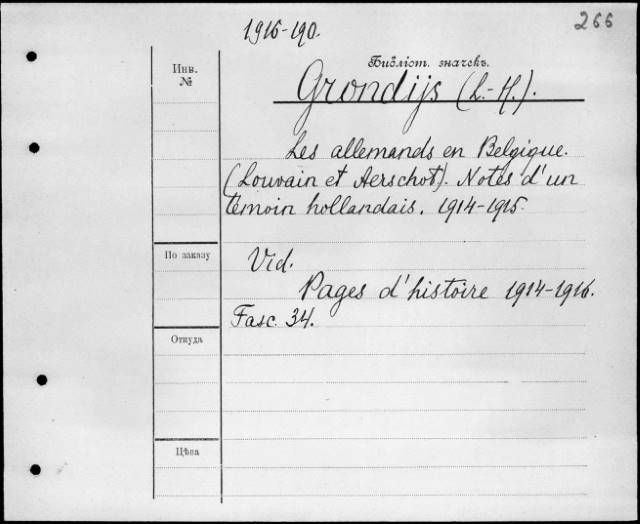 1916-190.
266
Инв.
№
Библіот. значекъ.
Grondijs (L.-H.).
Les allemands en Belgique.
(Louvain et Aerschot). Notes d'un
témoin hollandais. 1914-1915.
По заказу
Vid.
Pages d'histoire 1914-1916.
Fasc. 34.
Откуда
Цѣна